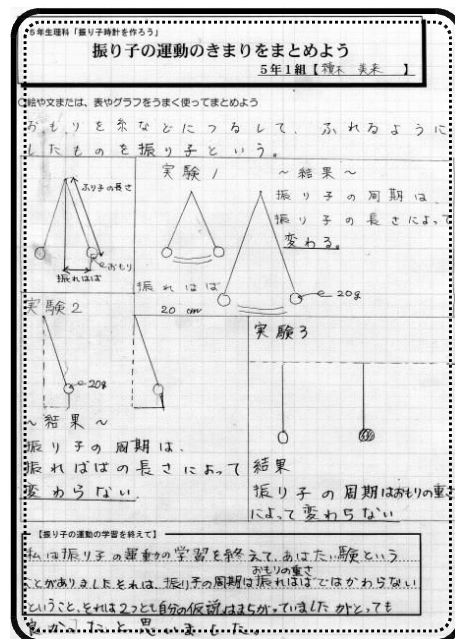 5年生理科「振り子時計を作ろう」
振り子の運動のきまりをまとめよう
5年1組【 美来 】
○絵や文または、表やグラフをうまく使ってまとめよう
おもりを糸などにつるして、ふれるように
したものを振り子という。
ふり子の長さ
おもり
振れはば
実験1
振れはば
20 cm
20g
～結果～
振り子の周期は、
振り子の長さによって
変わる。
実験2
20g
～結果～
振り子の周期は、
振ればばの長さによって
変わらない
実験3
結果
振り子の周期はおもりの重さ
によって変わらない
【振り子の運動の学習を終えて】
私は振り子の運動の学習を終えて、
おもりの重さ
ことがありましたそれは、振り子の周期は振ればばではかわらない
ということ、それは2つとも自分の仮説はまちがっていましたがとても
良かったと思いました。